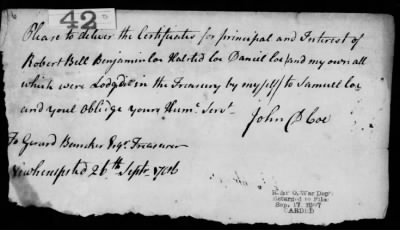 42
Please to deliver the Certificates for principal and Interest of
Robert Bell Benjamin Coe Halsted Coe Daniel Coe and my own all
which were Lodg'd in the Treasury by myself to Samuel Coe
and youl Obblidge yours Humᵉ Servᵗ
John D Coe
To Gerard Bancker Esqʳ Treasurer
Newhempsted 26th Septr. 1786
R. & P. O. War Dep't
Returned to File:
Sep. 17, 1907
CARDED